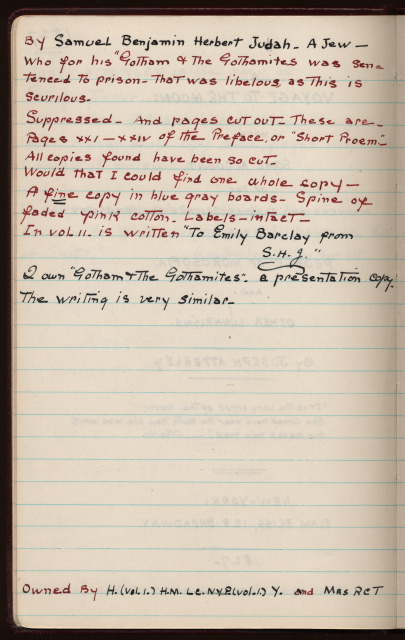 By Samuel Benjamin Herbert Judah. A Jew —
Who for his "Gotham & the Gothamites was sen=
tenced to prison - That was libelous, as this is
scurilous.
Suppressed - And pages cut out. These are
Pages xxi — xxiv of the Preface, or "Short Proem."
All copies found have been so cut.
Would that I could find one whole copy —
A fine copy in blue gray boards - Spine of
faded pink cotton. Labels - intact -
In vol II. is written "To Emily Barclay from
S. H. J."
I own "Gotham & the Gothamites". a presentation copy.
The writing is very similar.
Owned By H. (vol. 1.) H.M. L.C. N.Y.P. (vol. 1) Y. and Mrs RCT